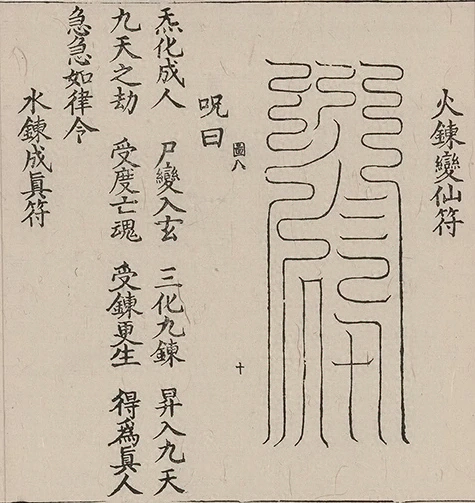 火鍊變仙符
圖八
十
呪曰
炁化成人 尸變入玄 三化九鍊 昇入九天
九天之劫 受度亡魂 受鍊更生 得爲眞人
急急如律令
水鍊成眞符